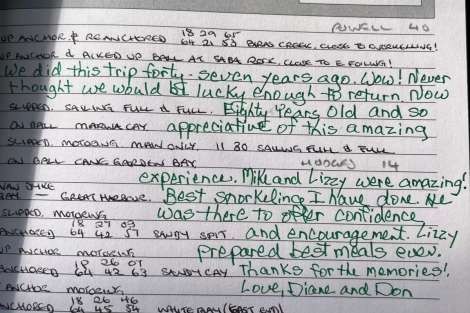 POWELL 40
18 29 65
UP ANCHOR & REANCHORED 64 21 53 BARAS CREEK, CLOSE TO E
UP ANCHOR & PICKED UP BALL AT SABA ROCK, CLOSE TO E
We did this trip forty-seven years ago. Wow! Never
thought we would be lucky enough to return. Now
SLIPPED, SAILING FULL & FULL. Eighty Years Old and so
ON BALL MARINA CAY appreciative of this amazing
SLIPPED, MOTORING MAIN ONLY. 11 30 SAILING FULL & FULL
ON BALL CANE GARDEN BAY 14
experience. Mike and Lizzy were amazing!
GREAT HARBOUR. Best snorkeling I have done. He
SLIPPED, MOTORING was there to offer confidence
18 27 03
ANCHORED 64 42 57 SANDY SPIT. and encouragement. Lizzy
UP ANCHOR MOTORING prepared best meals ever.
26 07
ANCHORED 64 42 63 SANDY CAY Thanks for the memories!
ANCHOR MOTORING Love, Diane and Don
18 26 46
ANCHORED 64 45 54 WHITE BAY (EAST END)